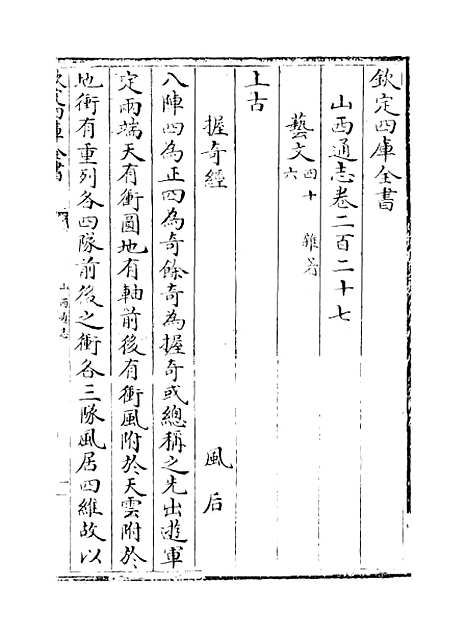 欽定四庫全書
山西通志卷二百二十七
藝文四十六 雜著
上古
握奇經 風后
八陣四為正四為奇餘奇為握奇或總稱之先出遊軍
定兩端天有衝圓地有軸前後有衝風附於天雲附於
地衝有重列各四隊前後之衝各三隊風居四維故以
欽定四庫全書 山西通志 一